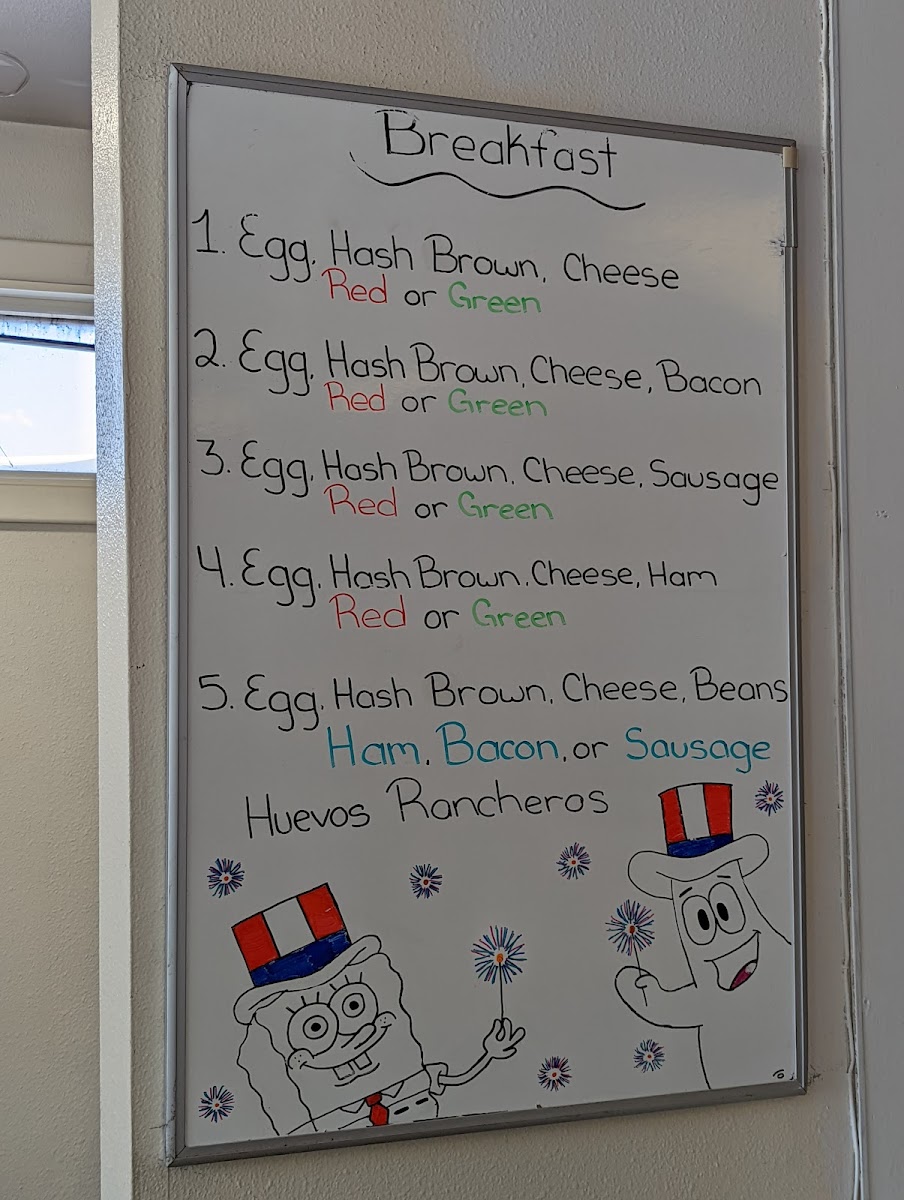 Breakfast
1. Egg, Hash Brown, Cheese
Red or Green
2. Egg, Hash Brown, Cheese, Bacon
Red or Green
3. Egg, Hash Brown, Cheese, Sausage
Red or Green
4. Egg, Hash Brown, Cheese, Ham
Red or Green
5. Egg, Hash Brown, Cheese, Beans
Ham, Bacon, or Sausage
Huevos Rancheros